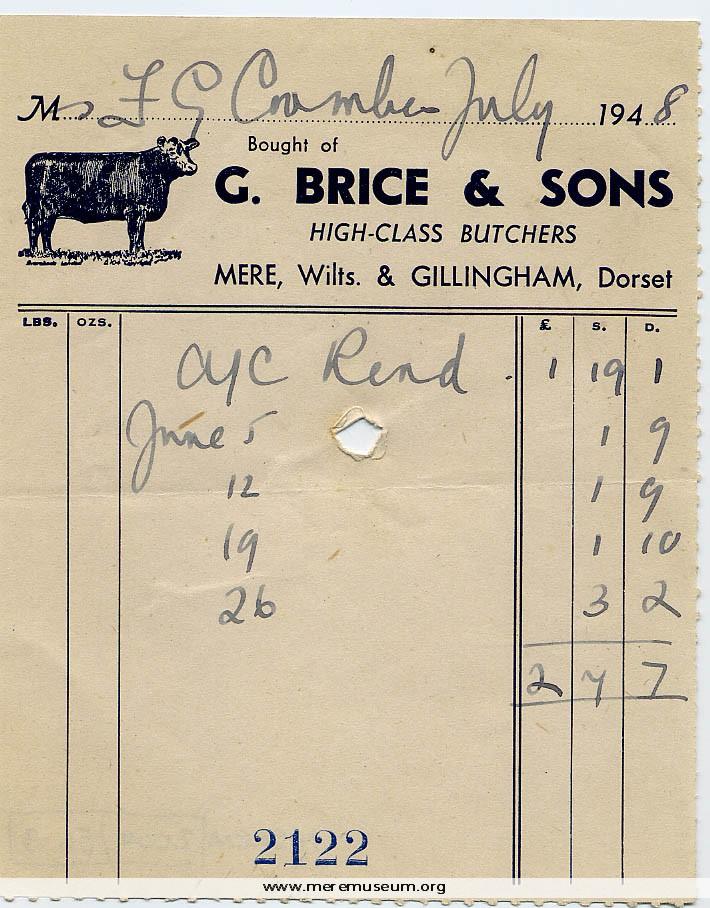 Ms F G Coombes July 1948
Bought of
G. BRICE & SONS
HIGH-CLASS BUTCHERS
MERE, Wilts. & GILLINGHAM, Dorset
LBS. OZS. £ S. D.
A/C Rend . 1 19 1
June 5 1 9
12 1 9
19 1 10
26 3 2
2 7 7
2122
www.meremuseum.org